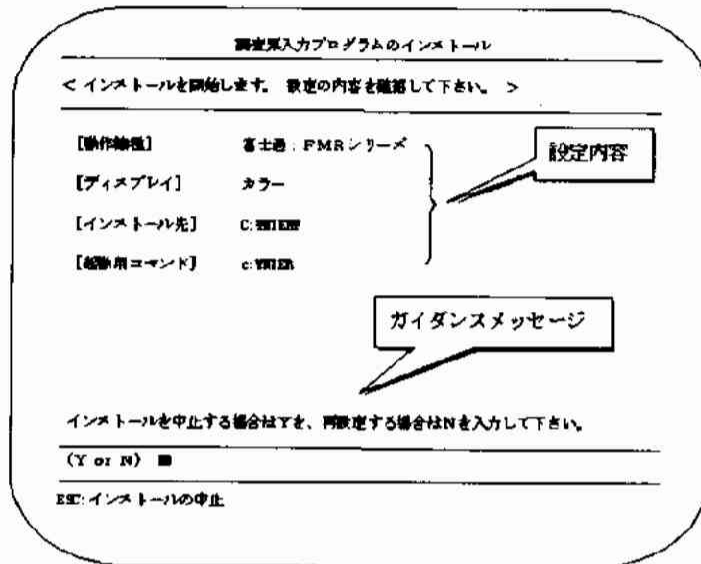 調査票入力プログラムのインストール
< インストールを開始します。 設定の内容を確認して下さい。 >
[動作機種] 富士通：FMRシリーズ
設定内容
[ディスプレイ] カラー
[インストール先]
[起動用コマンド]
ガイダンスメッセージ
インストールを中止する場合はYを、再設定する場合はNを入力して下さい。
(Y or N)
ESC:インストールの中止